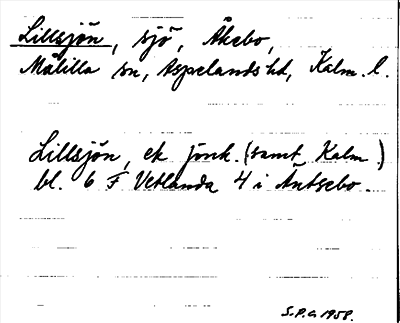 Lillsjön, sjö, Åkebo,
Målilla sn, Aspelands hd, Kalm. l.
Lillsjön, ek jönk. (samt Kalm.)
bl. 6 F Vetlanda 4 i Antsebo.
S.P.G. 1958.